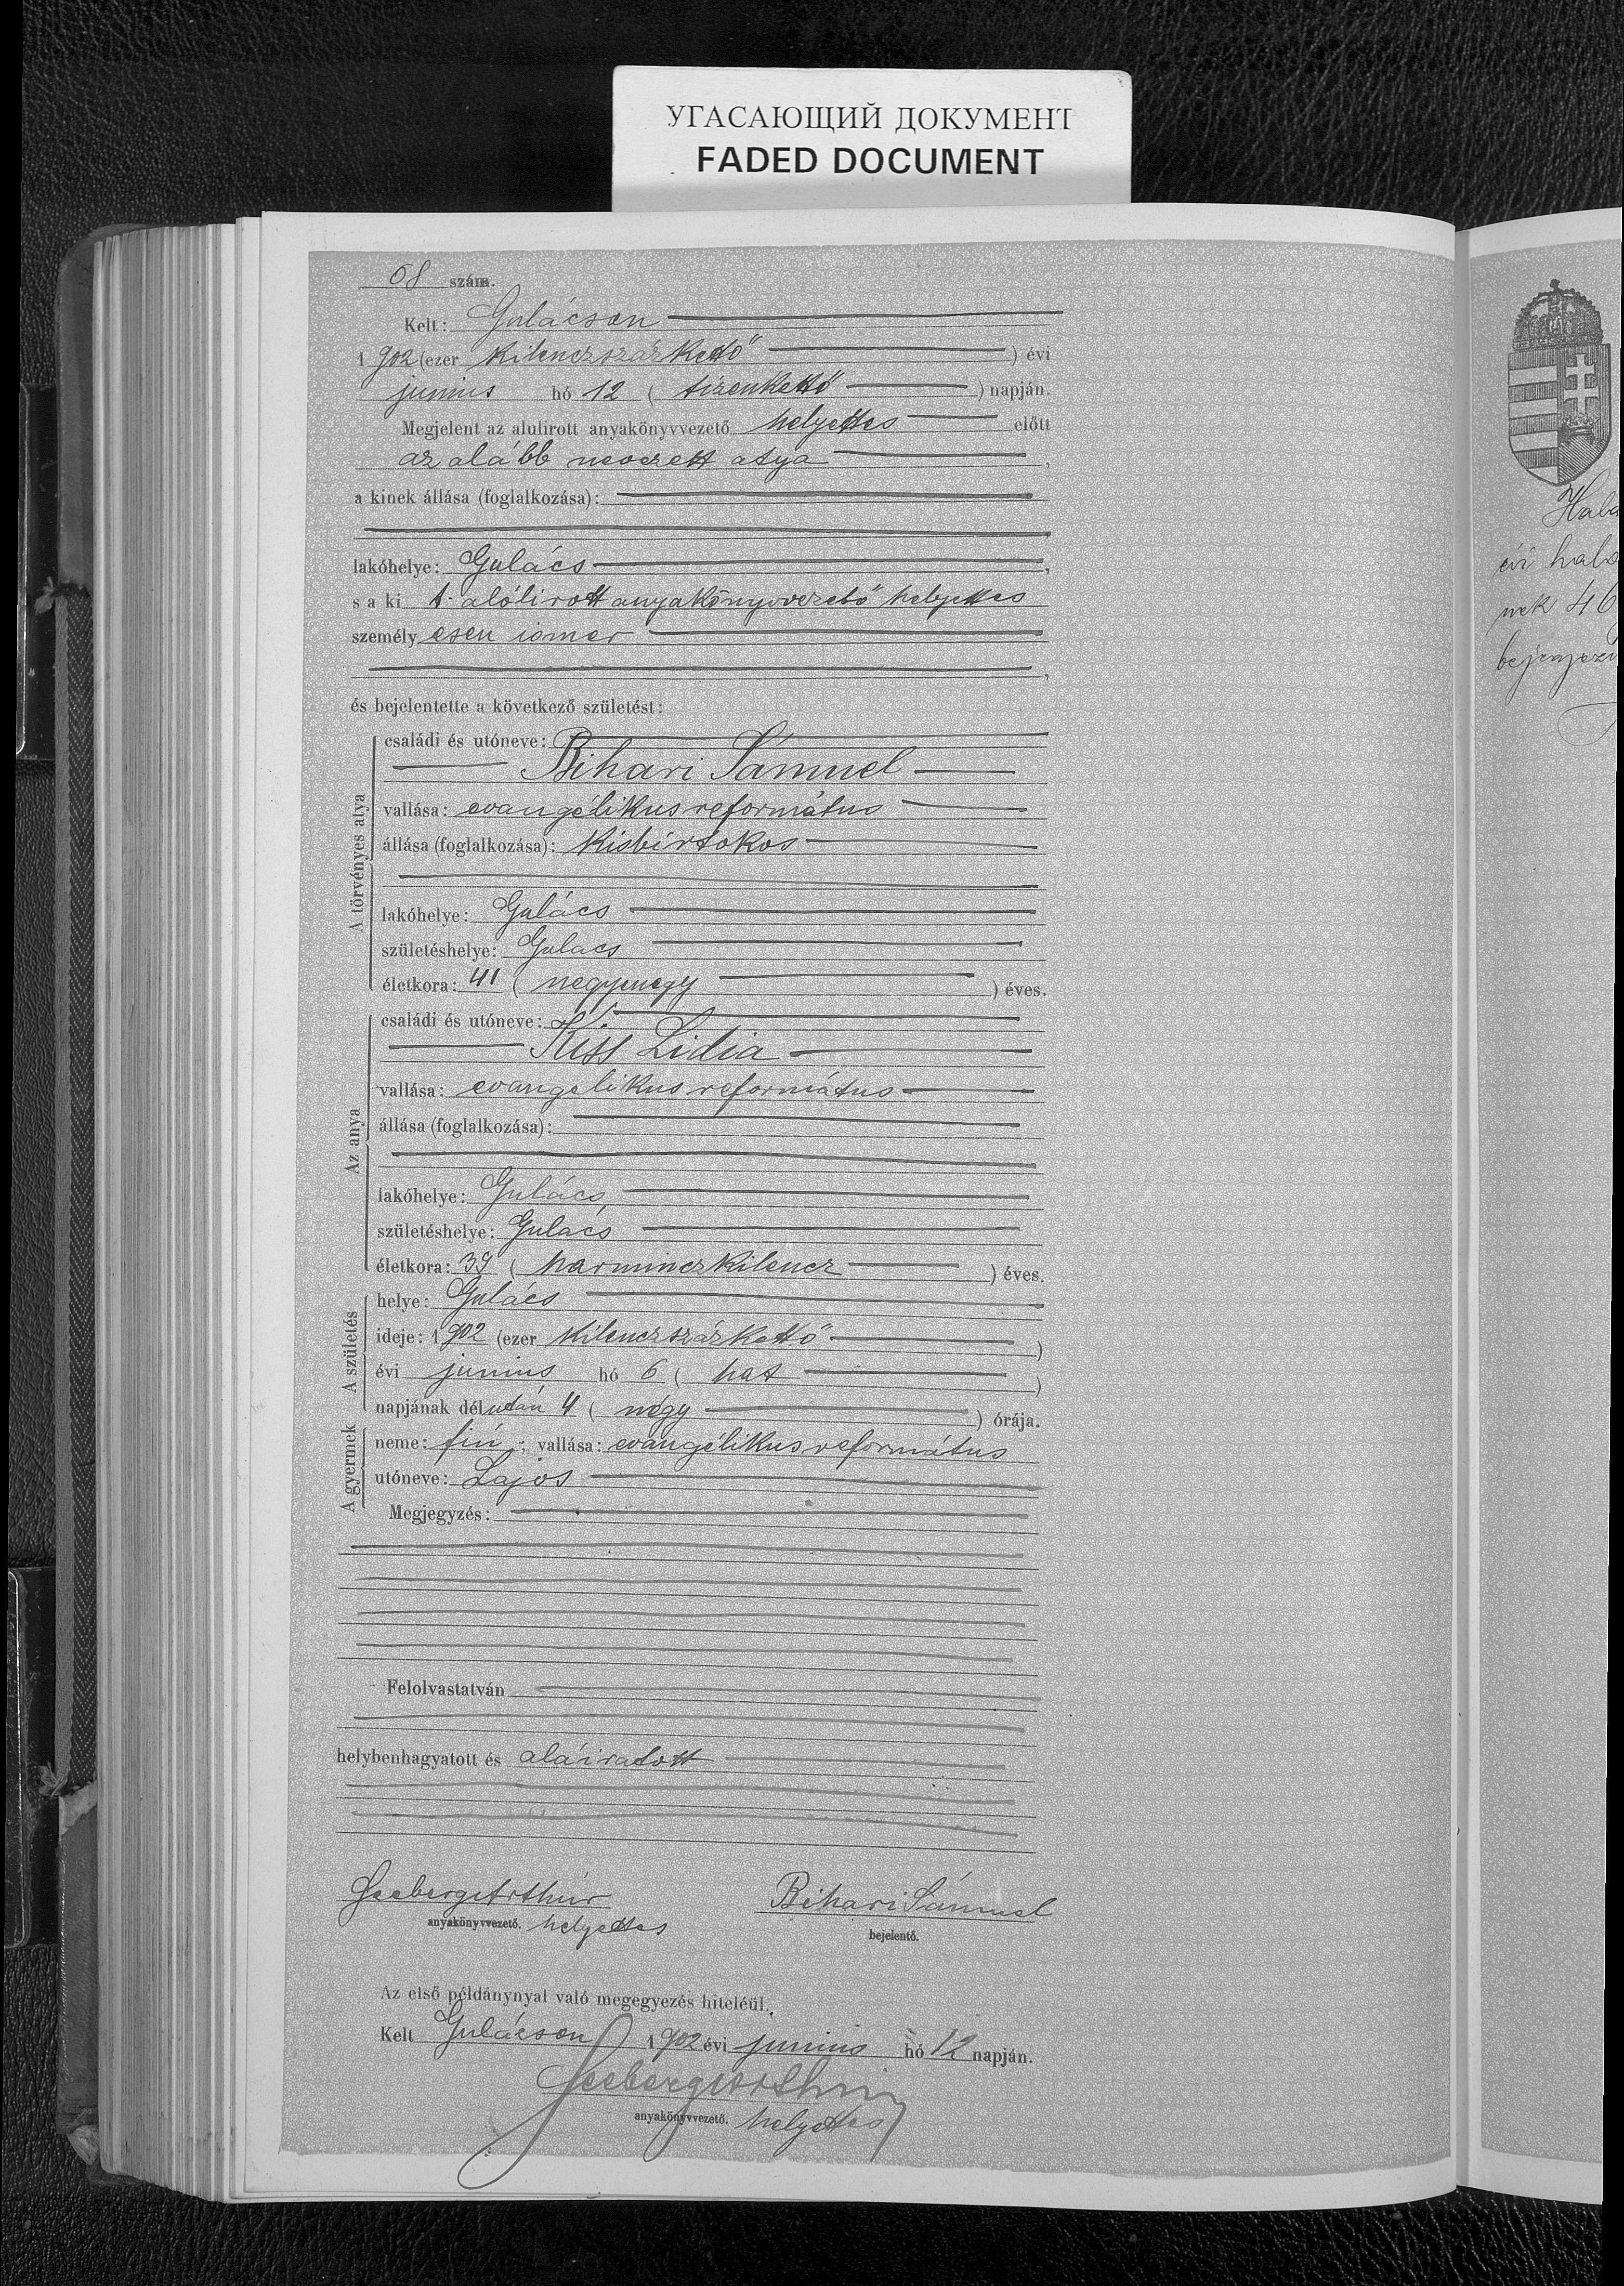 УГАСАЮЩИЙ ДОКУМЕНТ
FADED DOCUMENT
68 szám.
Kelt: Gulácson
1902 (ezer kilenczszázkettő) évi
junius hó 12 (tizenkettő) napján.
Megjelent az alulirott anyakönyvvezető helyettes előtt
az alább nevezett atya,
a kinek állása (foglalkozása):
lakóhelye: Gulács,
s a ki t. alólirott anyakönyvvezető helyettes
személyesen ismer
és bejelentette a következő születést:
A törvényes atya
családi és utóneve:
Bihari Sámuel
vallása: evangélikus református
állása (foglalkozása): kisbirtokos
lakóhelye: Gulács
születéshelye: Gulács
életkora: 41 (negyvenegy) éves.
Az anya
családi és utóneve:
Kiss Lidia
vallása: evangelikus református
állása (foglalkozása):
lakóhelye: Gulács,
születéshelye: Gulács
életkora: 39 (harminczkilencz) éves.
A születés
helye: Gulács
ideje: 1902 (ezer kilenczszázkettő)
évi junius hó 6 (hat)
napjának délután 4 (négy) órája.
A gyermek
neme: fiú; vallása: evangélikus református
utóneve: Lajos
Megjegyzés:
Felolvastatván
helybenhagyatott és aláiratott
Seeberg Arthúr Bihari Sámuel
anyakönyvvezető. helyettes bejelentő.
Az első példánynyal való megegyezés hiteléül.
Kelt Gulácson 1902 évi junius hó 12 napján.
Seeberg Arthúr
anyakönyvvezető. helyettes
évi
nek 46